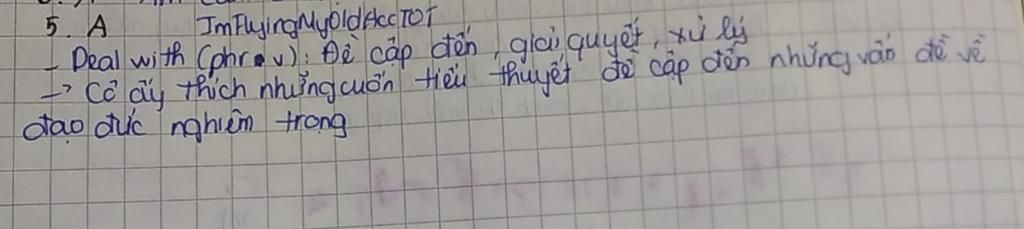 5. A ImFlyingMyOldAccTOT
- Deal with (phr v): Đề cập đến, giải quyết, xử lý
→ Cô ấy thích những cuốn tiểu thuyết đề cập đến những vấn đề về
đạo đức nghiêm trọng